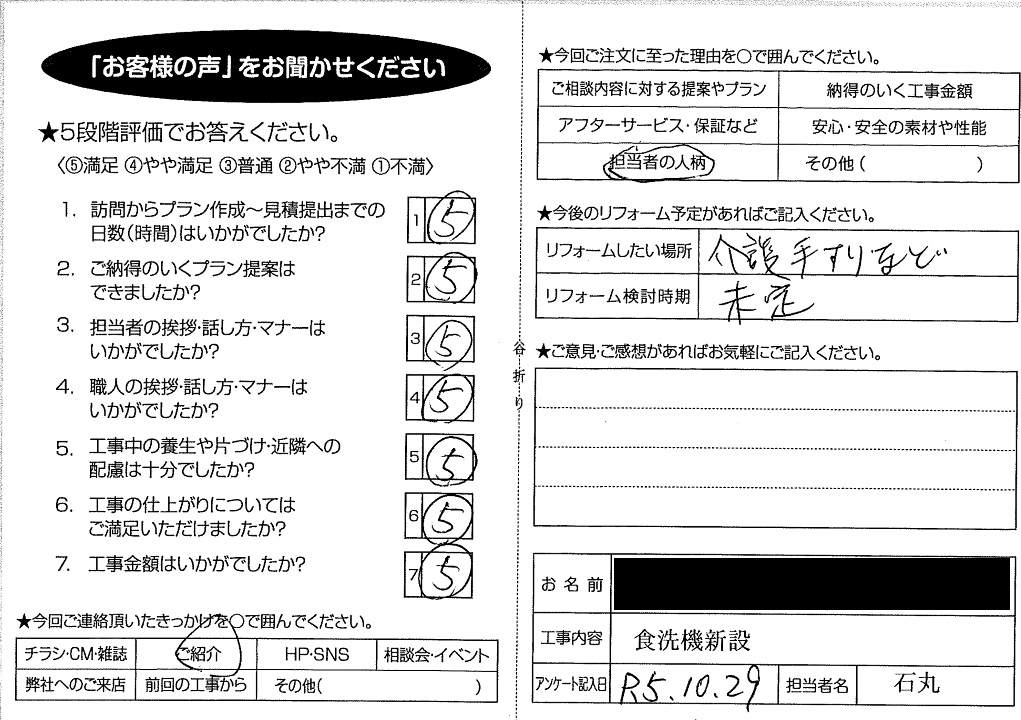 「お客様の声」をお聞かせください
★5段階評価でお答えください。
〈⑤満足 ④やや満足 ③普通 ②やや不満 ①不満〉
1. 訪問からプラン作成〜見積提出までの
日数(時間)はいかがでしたか?
1 5
2. ご納得のいくプラン提案は
できましたか?
2 5
3. 担当者の挨拶・話し方・マナーは
いかがでしたか?
3 5
4. 職人の挨拶・話し方・マナーは
いかがでしたか?
4 5
5. 工事中の養生や片づけ・近隣への
配慮は十分でしたか?
5 5
6. 工事の仕上がりについては
ご満足いただけましたか?
6 5
7. 工事金額はいかがでしたか?
7 5
★今回ご連絡頂いたきっかけを○で囲んでください。
チラシ・CM・雑誌 ご紹介 HP・SNS 相談会・イベント
弊社へのご来店 前回の工事から その他( )
谷折り
★今回ご注文に至った理由を○で囲んでください。
ご相談内容に対する提案やプラン 納得のいく工事金額
アフターサービス・保証など 安心・安全の素材や性能
担当者の人柄 その他( )
★今後のリフォーム予定があればご記入ください。
リフォームしたい場所 介護手すりなど
リフォーム検討時期 未定
★ご意見・ご感想があればお気軽にご記入ください。
お名前
工事内容 食洗機新設
アンケート記入日 R5.10.29 担当者名 石丸